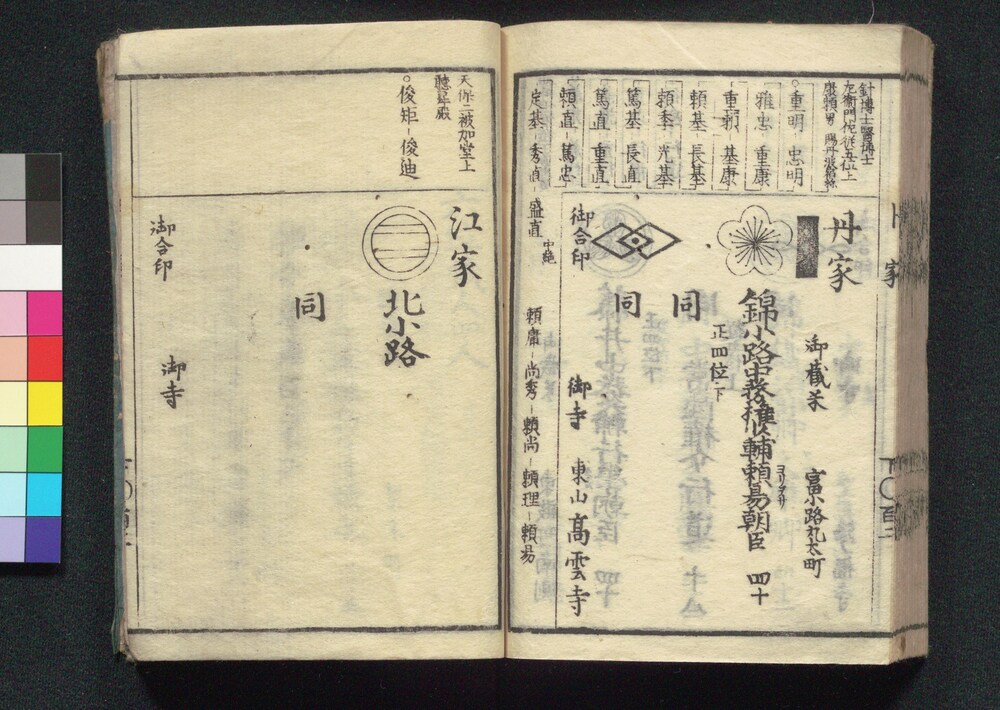 丹家
針博士醫博士
左衛門佐従五位上
康頼男 賜丹波宿祢
重明 忠明
雅忠 重康
重頼 基康
頼基 長基
頼季 光基
篤基 長直
篤直 重直
頼直 篤忠
定基 秀直 盛直 中絶
頼庸 尚秀 頼尚 頼理 頼易
御蔵米 富小路丸太町
錦小路中務権少輔頼易朝臣 四十
ヨリヲサ
正四位下
同
同
御合印
御寺 東山 高雲寺
江家
天保二被加堂上
聴昇殿
俊矩 俊迪
北小路
同
御合印
御寺